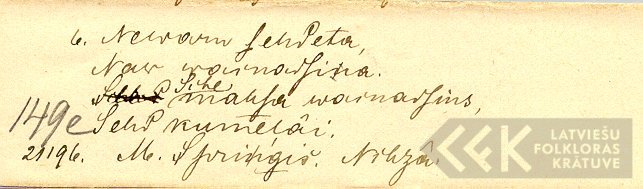 6. Newaru sehdeta,
Naw wainadsiņa.
Sihe
maksa wainadsiņs,
149e Sehd kumeļâi.
21196. M. Spriņģis. Nihzâ.
LATVIEŠU
FOLKLORAS
KRĀTUVE